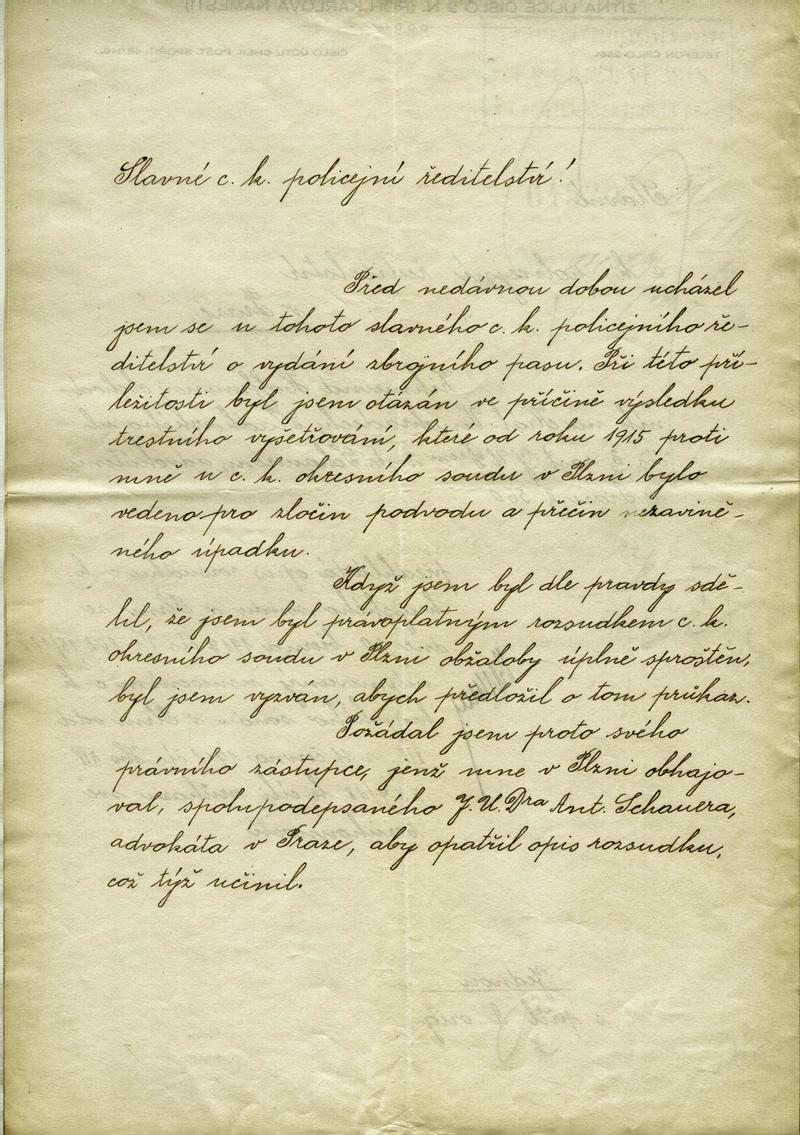 Slavné c. k. policejní ředitelství!
Před nedávnou dobou ucházel
jsem se u tohoto slavného c. k. policejního ře-
ditelství o vydání zbrojního pasu. Při této pří-
ležitosti byl jsem otázán ve příčině výsledku
trestního vyšetřování, které od roku 1915 proti
mně u c. k. okresního soudu v Plzni bylo
vedeno pro zločin podvodu a přečin nezavině-
ného úpadku.
Když jsem byl dle pravdy sdě-
lil, že jsem byl právoplatným rozsudkem c. k.
okresního soudu v Plzni obžaloby úplně sproštěn,
byl jsem vyzván, abych předložil o tom průkaz.
Požádal jsem proto svého
právního zástupce, jenž mne v Plzni obhajo-
val, spolupodepsaného J. U. Dra Ant. Schauera,
advokáta v Praze, aby opatřil opis rozsudku,
což týž učinil.